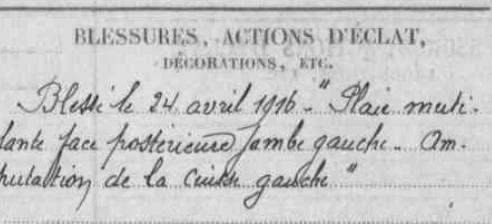 BLESSURES, ACTIONS D'ÉCLAT,
DÉCORATIONS, ETC.
Blessé le 24 avril 1916 - "Plaie muti-
lante face postérieure jambe gauche - Am-
putation de la cuisse gauche"